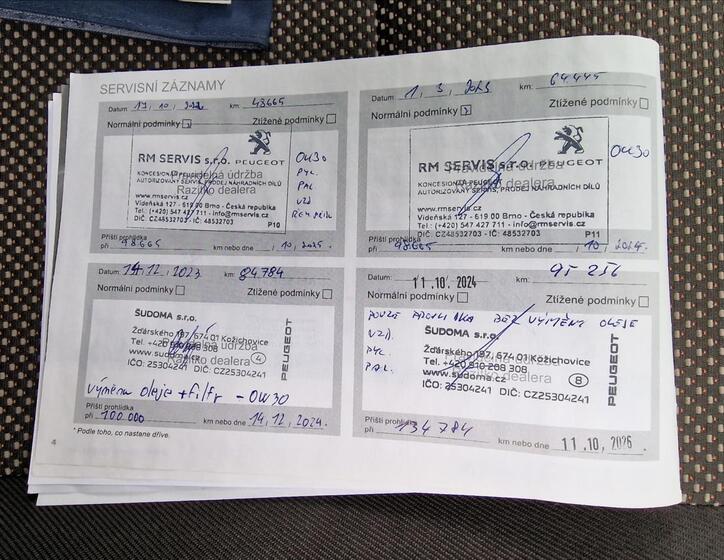 SERVISNÍ ZÁZNAMY
Datum km: 48665
Normální podmínky Ztížené podmínky
RM SERVIS s.r.o. PEUGEOT
0W30
Pravidelná údržba
KONCESIONÁŘ PEUGEOT
AUTORIZOVANÝ SERVIS, PRODEJ NÁHRADNÍCH DÍLŮ
Razítko dealera
www.rmservis.cz
Vídeňská 127 - 619 00 Brno - Česká republika
Tel.: (+420) 547 427 711 - info@rmservis.cz
DIČ: CZ48532703 - IČ: 48532703 P10
PYL.
PAL.
VZD
Příští prohlídka
při 98665 km nebo dne , 10, 2025.
Datum 1, 3, 2023 km: 64445
Normální podmínky Ztížené podmínky
RM SERVIS s.r.o. PEUGEOT
0W30
Pravidelná údržba
KONCESIONÁŘ PEUGEOT
AUTORIZOVANÝ SERVIS, PRODEJ NÁHRADNÍCH DÍLŮ
Razítko dealera
www.rmservis.cz
Vídeňská 127 - 619 00 Brno - Česká republika
Tel.: (+420) 547 427 711 - info@rmservis.cz
DIČ: CZ48532703 - IČ: 48532703 P11
Příští prohlídka
při 98665 km nebo dne , 10, 2024.
Datum: 14,12,2023 km: 84784
Normální podmínky Ztížené podmínky
ŠUDOMA s.r.o.
Žďárského 187, 674 01 Kožichovice
Pravidelná údržba
Tel. +420 910 208 308
www.sudoma.cz
Razítko dealera 4
IČO: 25304241 DIČ: CZ25304241
PEUGEOT
výměna oleje + filtr - 0W30
Příští prohlídka
při 100.000 km nebo dne 14,12,2024.
4 * Podle toho, co nastane dříve.
Datum: 11.10. 2024 km: 95 256
Normální podmínky Ztížené podmínky
POUZE PROHLÍDKA BEZ VÝMĚNY OLEJE
VZD.
PYL.
PAL.
ŠUDOMA s.r.o.
Žďárského 187, 674 01 Kožichovice
Pravidelná údržba
Tel. +420 910 208 308
www.sudoma.cz
Razítko dealera 8
IČO: 25304241 DIČ: CZ25304241
PEUGEOT
Příští prohlídka
při 134 784 km nebo dne 11.10. 2026